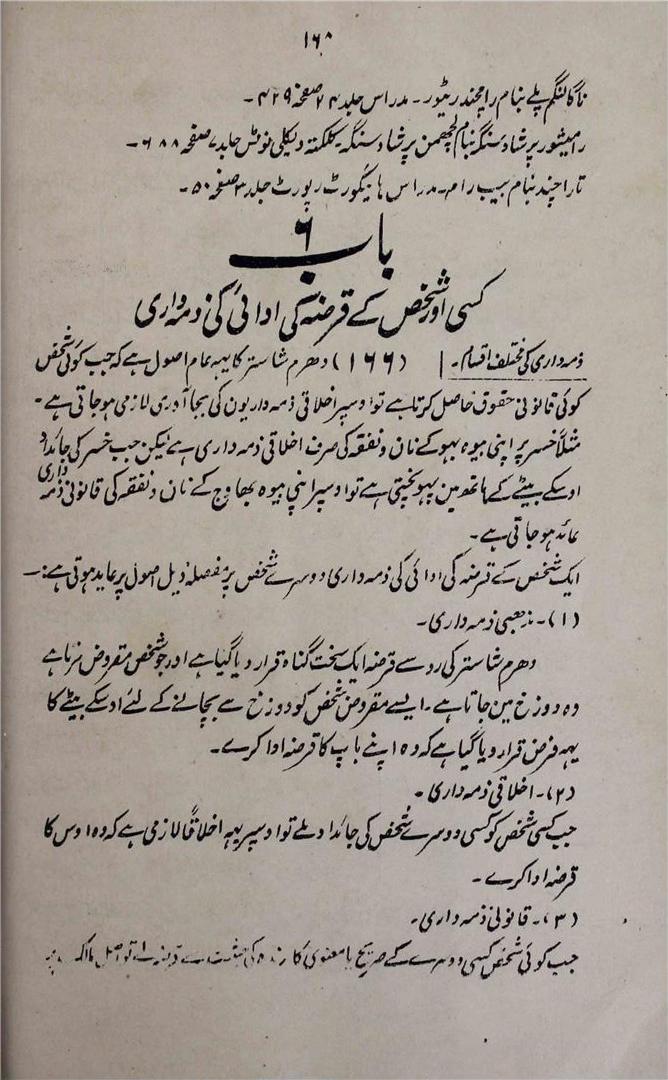 ۱۶۸
ناگالنگم پلے بنام رامچندر ٹیور۔ مدراس جلد ۲۴ صفحہ ۴۲۹۔
رامیشور پرشاد سنگہ بنام لچھمن پرشاد سنگہ۔ کلکتہ ویکلی نوٹس جلد ۷ صفحہ ۶۸۸۔
تارا چند بنام سیب رام۔ مدراس ہائیکورٹ رپورٹ جلد ۳ صفحہ ۵۰۔
باب ۶
کسی اور شخص کے قرضہ کی ادائی کی ذمہ داری
ذمہ داری کی مختلف اقسام۔ (۱۶۶) دھرم شاستر کا یہہ عام اصول ہے کہ جب کوئی شخص
کوئی قانونی حقوق حاصل کرتا ہے تو اوسپر اخلاقی ذمہ داریون کی بجا آوری لازمی ہو جاتی ہے۔
مثلاً خسر پر اپنی بیوہ بہو کے نان و نفقہ کی صرف اخلاقی ذمہ داری ہے لیکن جب خسر کی جائداد
اوسکے بیٹے کے ہاتھ مین پہونچتی ہے تو اوسپر اپنی بیوہ بھاوج کے نان و نفقہ کی قانونی ذمہ داری
عائد ہو جاتی ہے۔
ایک شخص کے قرضہ کی ادائی کی ذمہ داری دوسرے شخص پر مفصلہ ذیل اصول پر عاید ہوتی ہے:—
(۱)۔ مذہبی ذمہ داری۔
دھرم شاستر کی رو سے قرضہ ایک سخت گناہ قرار دیا گیا ہے اور جو شخص مقروض مرتا ہے
وہ دوزخ مین جاتا ہے۔ ایسے مقروض شخص کو دوزخ سے بچانے کے لئے اوسکے بیٹے کا
یہہ فرض قرار دیا گیا ہے کہ وہ اپنے باپ کا قرضہ ادا کرے۔
(۲)۔ اخلاقی ذمہ داری۔
جب کسی شخص کو کسی دوسرے شخص کی جائداد ملے تو اوسپر یہہ اخلاقاً لازمی ہے کہ وہ اوس کا
قرضہ ادا کرے۔
(۳)۔ قانونی ذمہ داری۔
جب کوئی شخص کسی دوسرے کے صریح یا معنوی کارندہ کی حیثیت سے قرضہ لے تو اصل مالک پر